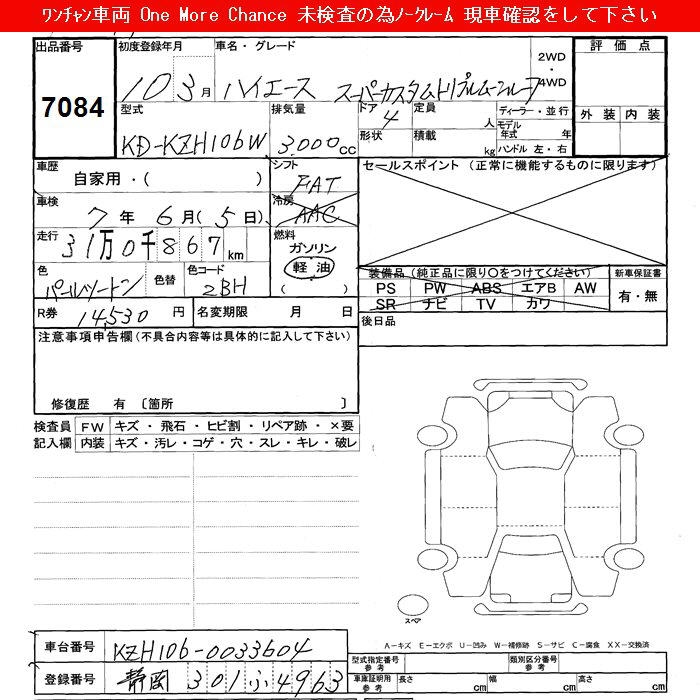 ワンチャン車両 One More Chance 未検査の為ノークレーム 現車確認をして下さい
出品番号 初度登録年月 車名・グレード 2WD ・ 4WD 評価点
7084 10 3月 ハイエース スーパーカスタムトリプルムーンルーフ
型式 排気量 ドア 4 定員 人 ディーラー・並行 外装 内装
KD-KZH106W 3.000cc 形状 積載 kg モデル年式 年 ハンドル 左・右
車歴 自家用・( ) シフト FAT セールスポイント (正常に機能するものに限ります)
車検 7年 6月(5日) 冷房 AAC
走行 31万0千867km 燃料 ガソリン 軽油 ( )
色 パールツートン 色替 色コード 2BH
装備品 (純正品に限り○をつけてください) 新車保証書
PS PW ABS エアB AW 有・無
SR ナビ TV カワ
R券 14,530円 名変期限 月 日 後日品
注意事項申告欄(不具合内容等は具体的に記入して下さい)
修復歴 有 〔箇所 〕
検査員 FW キズ・飛石・ヒビ割・リペア跡・×要
記入欄 内装 キズ・汚レ・コゲ・穴・スレ・キレ・破レ
スペア
A-キズ E-エクボ U-凹み W-補修跡 S-サビ C-腐食 XX-交換済
車台番号 KZH106-0033604 型式指定番号 参考 類別区分番号 参考
登録番号 静岡 301 ふ 4963 車庫証明用 参考 長さ cm 幅 cm 高さ cm